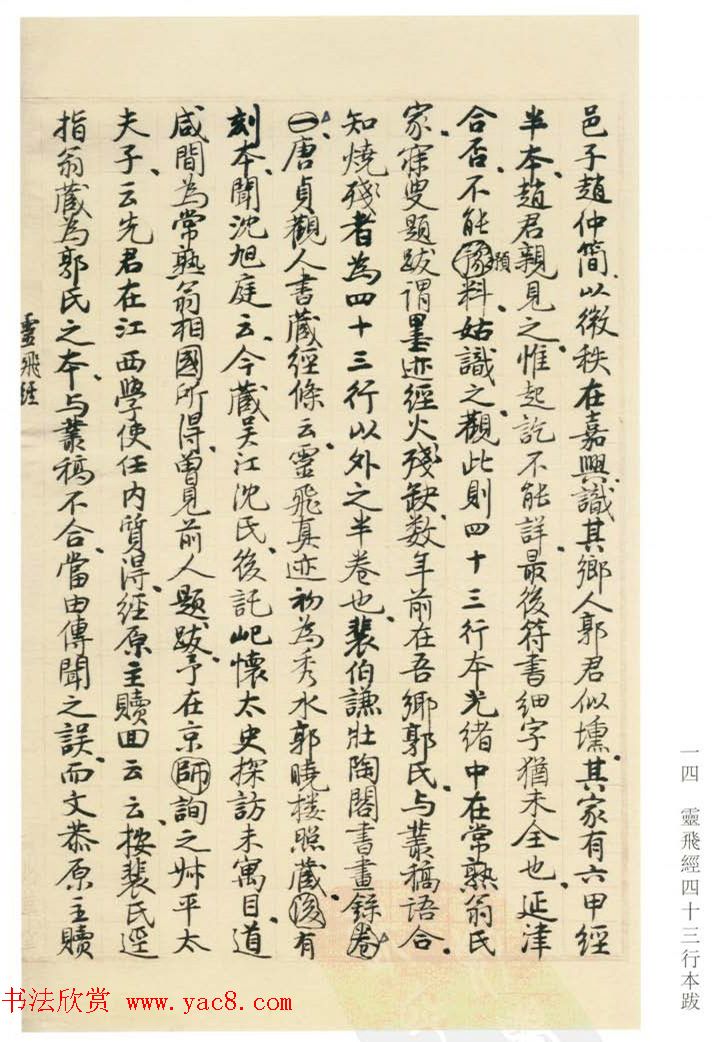 邑子趙仲簡以微秩在嘉興識其鄉人郭君似壎其家有六甲經
半本趙君親見之惟起訖不能詳最後符書細字猶未全也延津
合否不能豫預料姑識之觀此則四十三行本光緒中在常熟翁氏
家寐叟題跋謂墨迹經火殘缺数年前在吾鄉郭氏与叢稿語合
知燒殘者為四十三行以外之半卷也裴伯謙壯陶閣書畫錄卷
一唐貞觀人書藏經條云靈飛真迹初為秀水郭曉樓照藏後有
刻本聞沈旭庭云今藏吴江沈氏後託屺懷太史探訪未寓目道
咸間為常熟翁相國所得曽見前人題跋予在京師詢之叔平太
夫子云先君在江西學使任内質得經原主贖回云云按裴氏逕
指翁藏為郭氏之本与叢稿不合當由傳聞之誤而文恭原主贖
靈飛經
一四 靈飛經四十三行本跋
书法欣赏 www.yac8.com